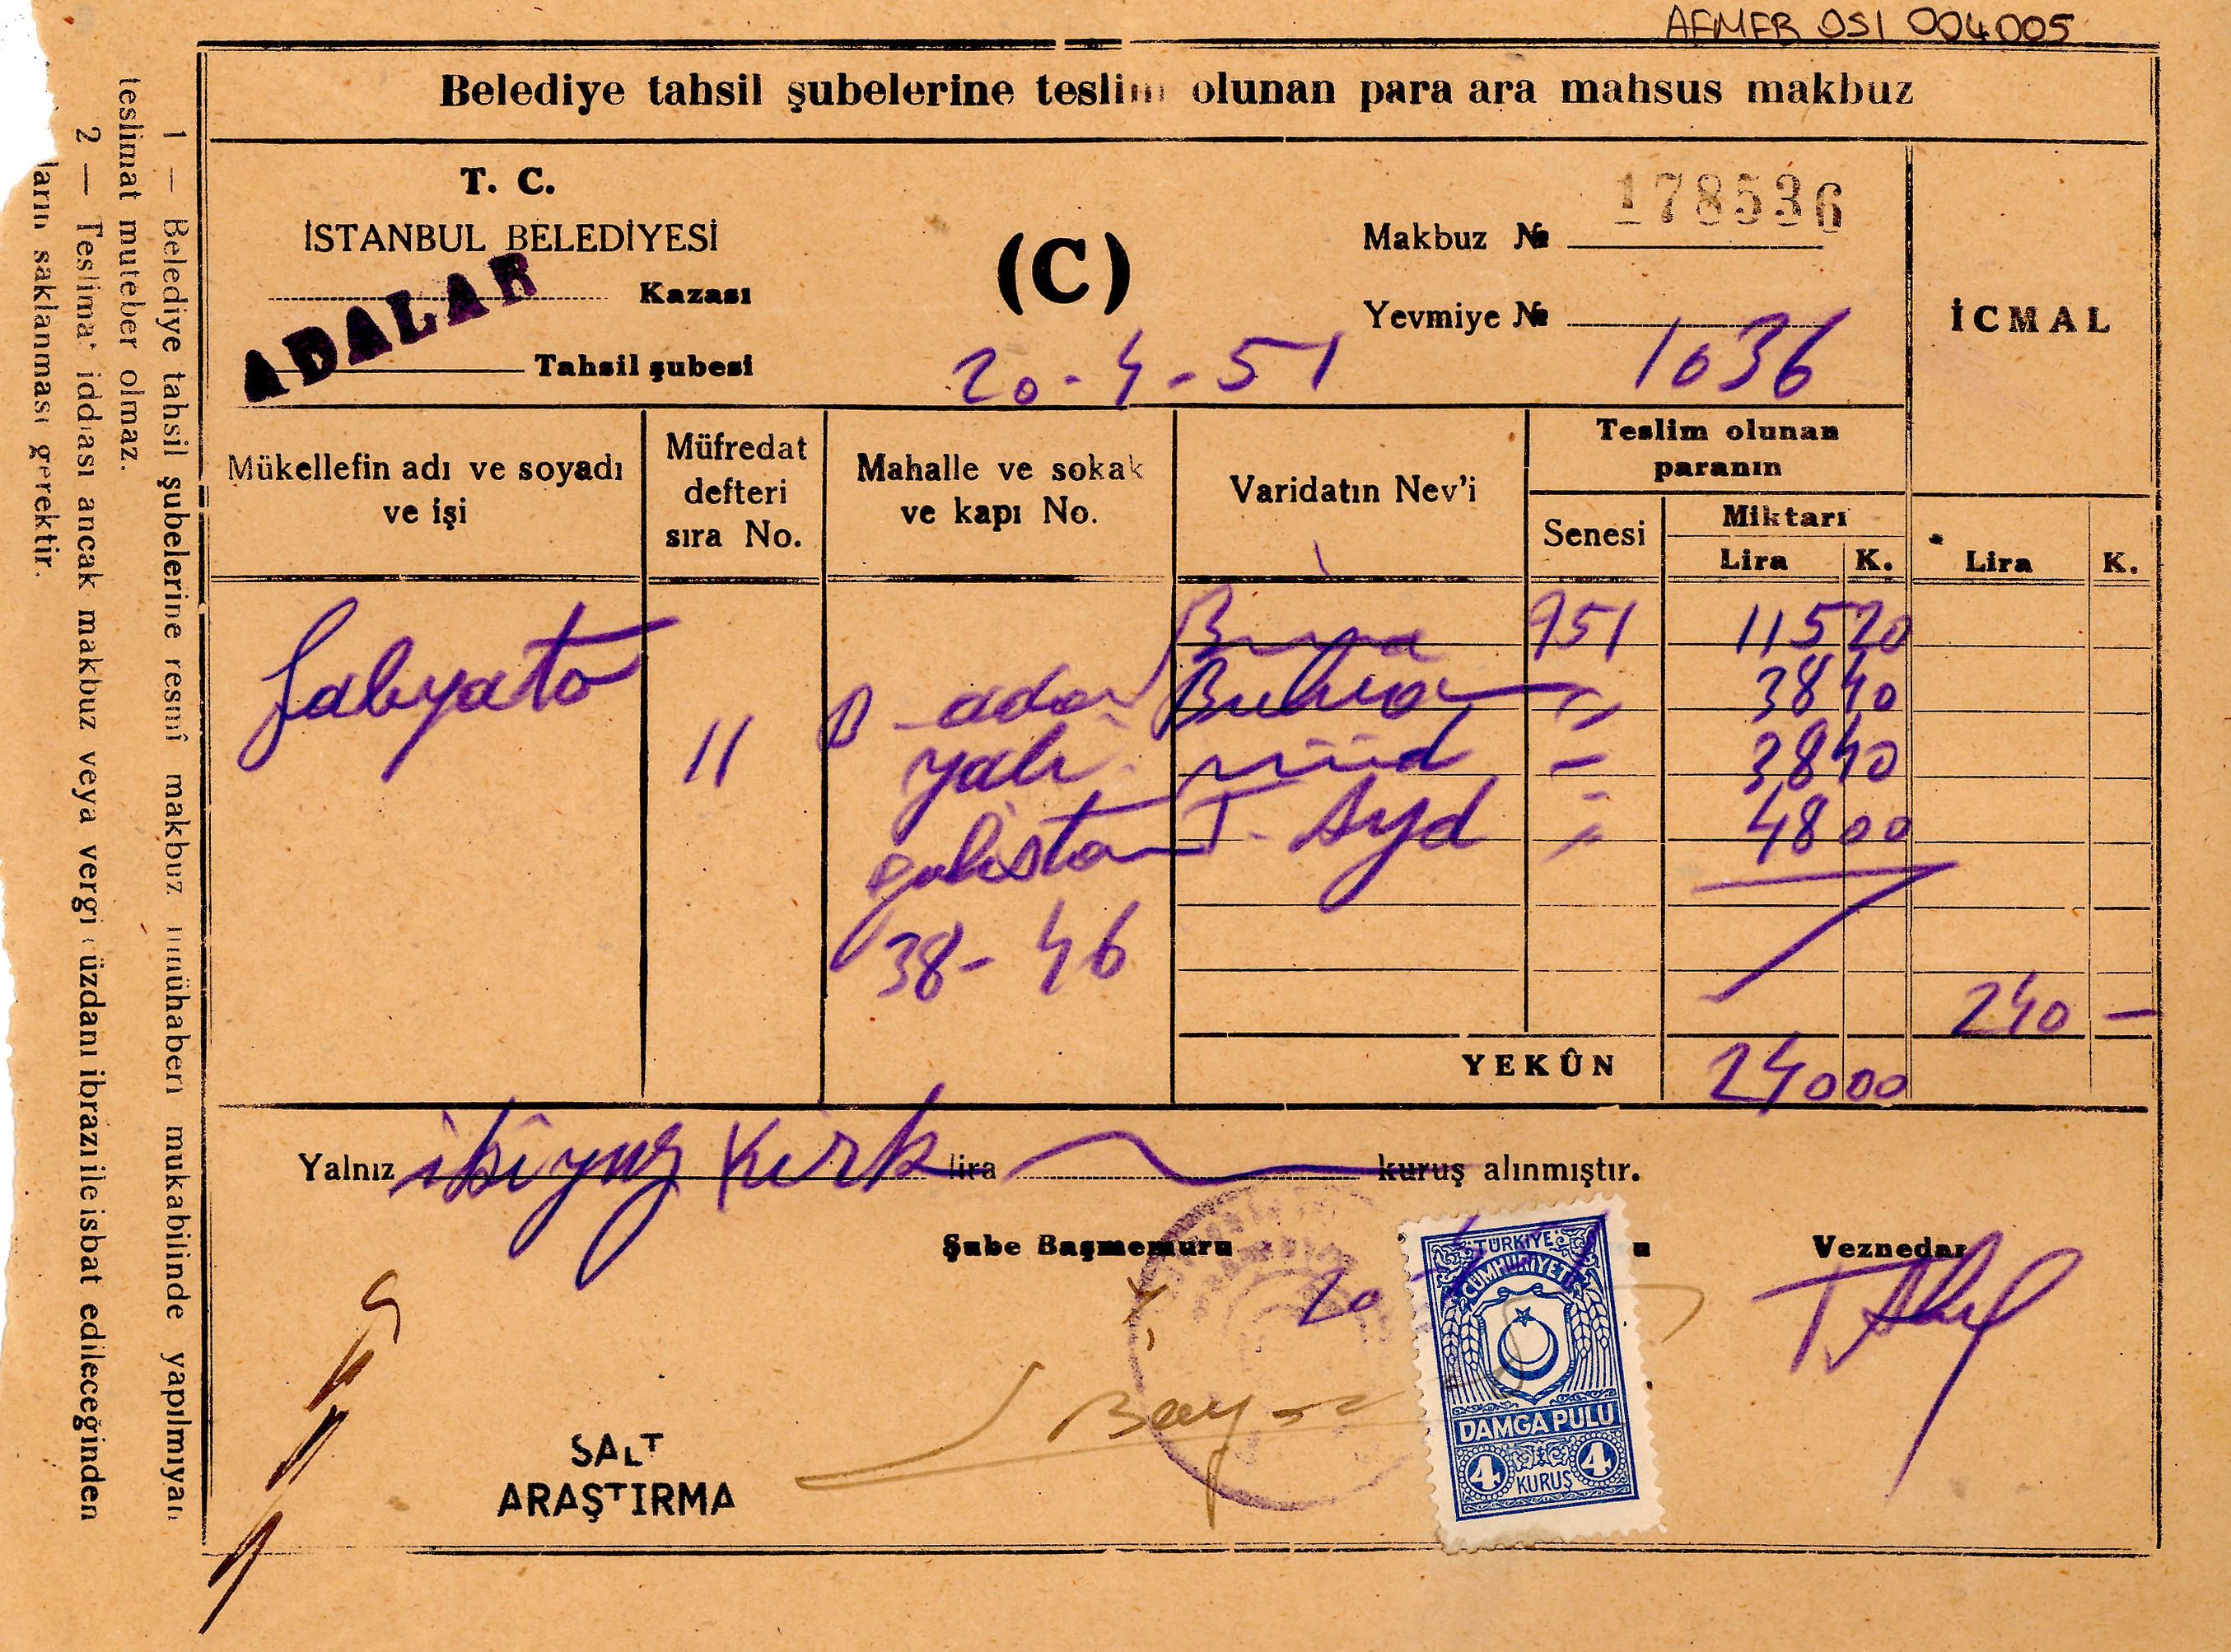 AFMFB OSI 004005
Belediye tahsil şubelerine teslim olunan para ara mahsus makbuz
T. C.
İSTANBUL BELEDİYESİ
Kazası
ADALAR
Tahsil şubesi
(C)
20-4-51
Makbuz № 178536
Yevmiye № 1036
İCMAL
Mükellefin adı ve soyadı
ve işi
Müfredat
defteri
sıra No.
Mahalle ve sokak
ve kapı No.
Varidatın Nev'i
Teslim olunan
paranın
Senesi
Miktarı
Lira K.
Lira K.
Bina 951 115 20
B-ada Buhran 38 40
yalı 38 40
11
gulistan 48 00
38-46
240 -
YEKÛN 240 00
Yalnız ikiyüz Kırk lira kuruş alınmıştır.
Şube Başmemuru
Veznedar
20
TÜRKİYE
CUMHURİYETİ
DAMGA PULU
4 KURUŞ 4
SALT
ARAŞTIRMA
1 — Belediye tahsil şubelerine resmî makbuz ilmühaberi mukabilinde yapılmıyan
teslimat muteber olmaz.
2 — Teslimat iddiası ancak makbuz veya vergi cüzdanı ibrazı ile isbat edileceğinden
ların saklanması gerektir.